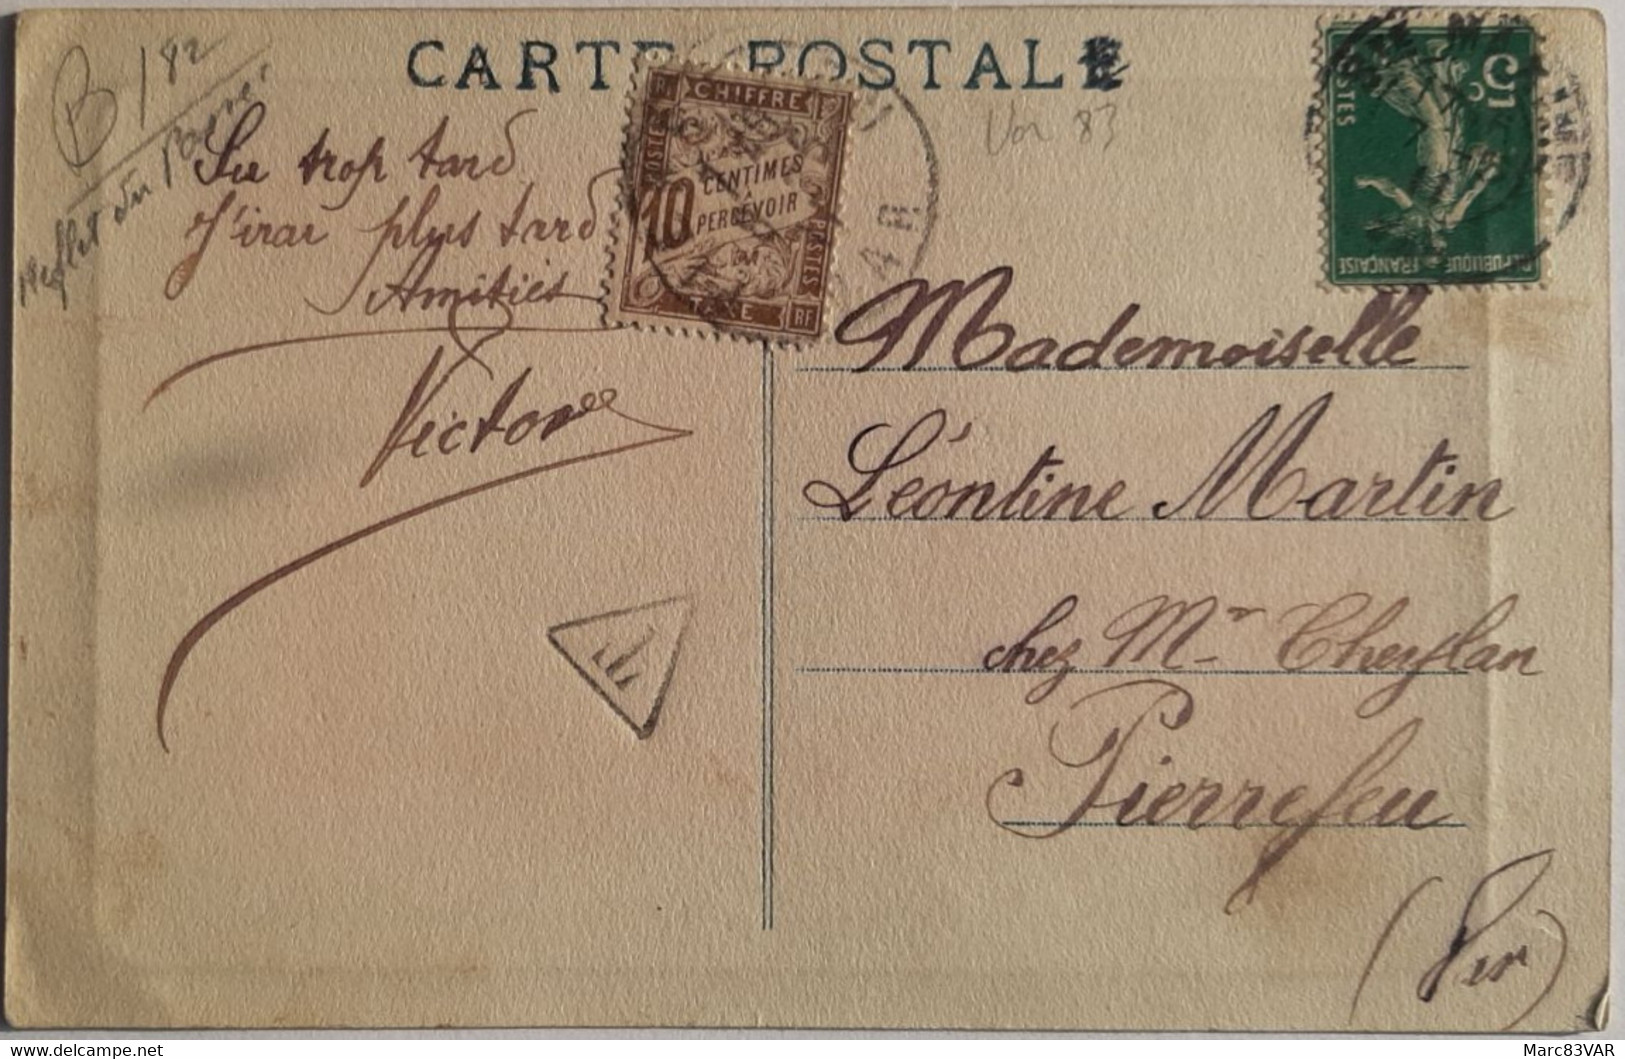 CARTE POSTALE
B/82
Reflet du Passé
Var 83
Su trop tard
J'irai plus tard
Amitiés
Victor
CHIFFRE
POSTES
10
CENTIMES
À
PERCEVOIR
POSTES
TAXE
RF
VAR
5c
POSTES
RÉPUBLIQUE FRANÇAISE
Mademoiselle
Léontine Martin
chez Mr Cheylan
Pierrefeu
(Var)
Marc83VAR